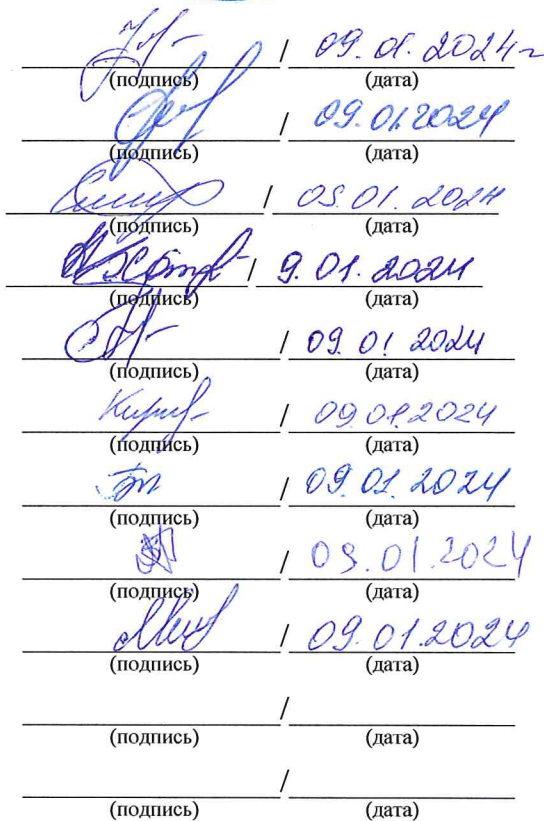 / 09.01.2024г
(подпись) (дата)
/ 09.01.2024
(подпись) (дата)
/ 09.01.2024
(подпись) (дата)
/ 9.01.2024
(подпись) (дата)
/ 09.01 2024
(подпись) (дата)
/ 09.01.2024
(подпись) (дата)
/ 09.01.2024
(подпись) (дата)
/ 09.01.2024
(подпись) (дата)
/ 09.01.2024
(подпись) (дата)
/
(подпись) (дата)
/
(подпись) (дата)